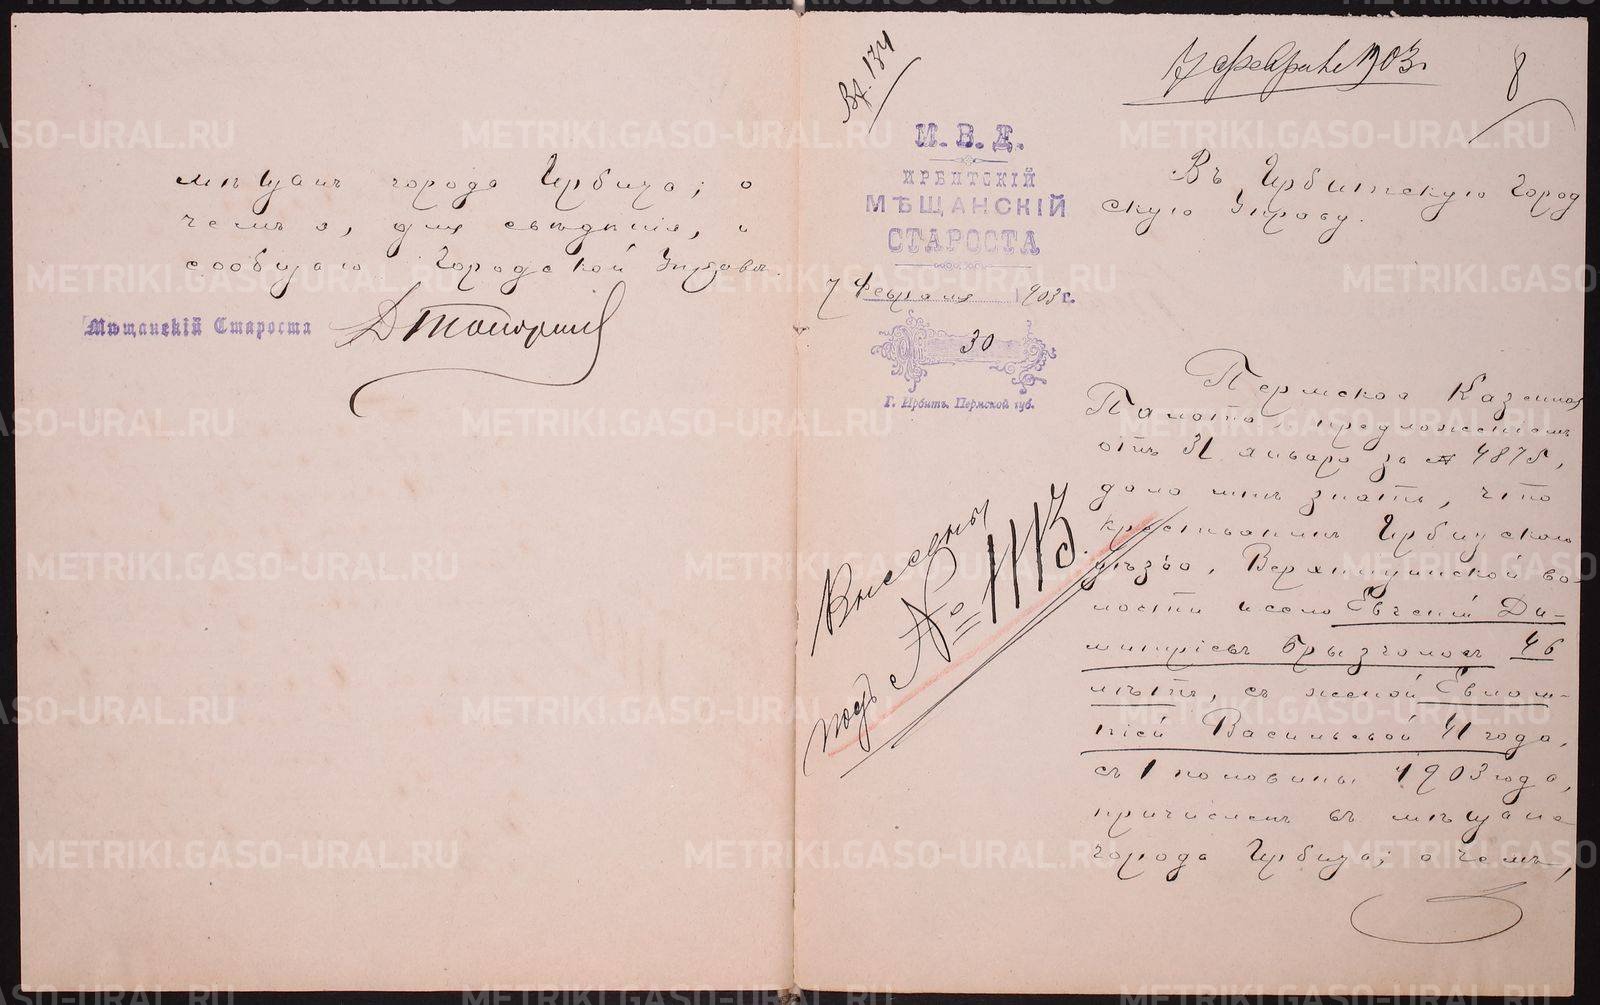 мѣщанъ города Ирбита; о
чемъ я, для свѣдѣнія, и
сообщаю Городской Управѣ.
Мѣщанскій Староста
Вх. 174
7 февраля 1903 г.
8
М. В. Д.
ИРБИТСКІЙ
МѢЩАНСКІЙ
СТАРОСТА
7 Февраля 1903 г.
30
Г. Ирбитъ, Пермской губ.
Въ Ирбитскую Город
скую Управу.
Пермская Казенная
Палата, предложеніемъ
отъ 31 января за № 4875,
дала мнѣ знать, что
крестьянинъ Ирбитскаго
уѣзда, Верхницинской во-
лости и села Евгеній Ди-
митріевъ Брызгаловъ 46
лѣтъ, съ женой Евлам-
піей Васильевой 41 года,
съ 1 половины 1903 года,
причисленъ въ мѣщане
города Ирбита; о чемъ,
Внесены
подъ № 1113.
METRIKI.GASO-URAL.RU